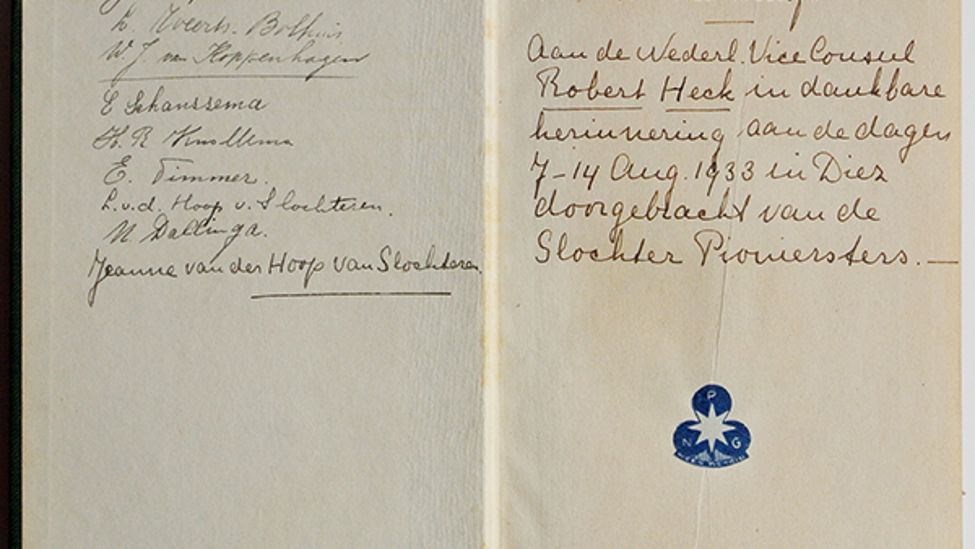 W. J. van Koppenhagen
E Schanssema
H. R Knollema
E. Timmer.
L.v.d. Hoop v. Slochteren.
N. Dallinga.
Jeanne van der Hoop van Slochteren.
Aan de Nederl. Vice Consul
Robert Heck in dankbare
herinnering aan de dagen
7-14 Aug. 1933 in Diez
doorgebracht van de
Slochter Pioniersters.
P
N G